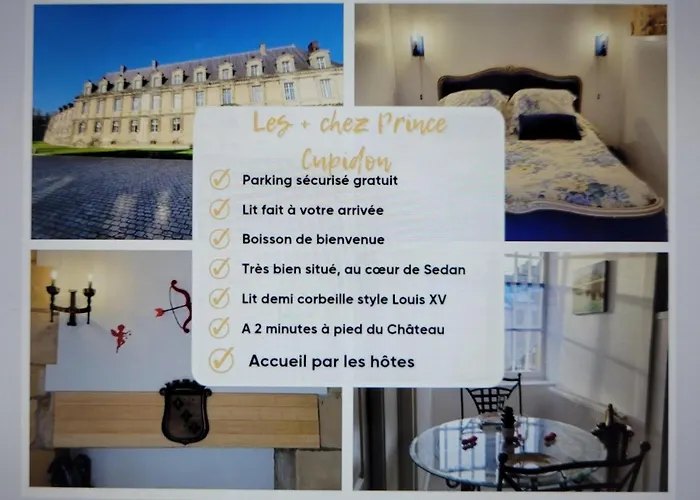 Les + chez Prince
Cupidon
Parking sécurisé gratuit
Lit fait à votre arrivée
Boisson de bienvenue
Très bien situé, au cœur de Sedan
Lit demi corbeille style Louis XV
A 2 minutes à pied du Château
Accueil par les hôtes